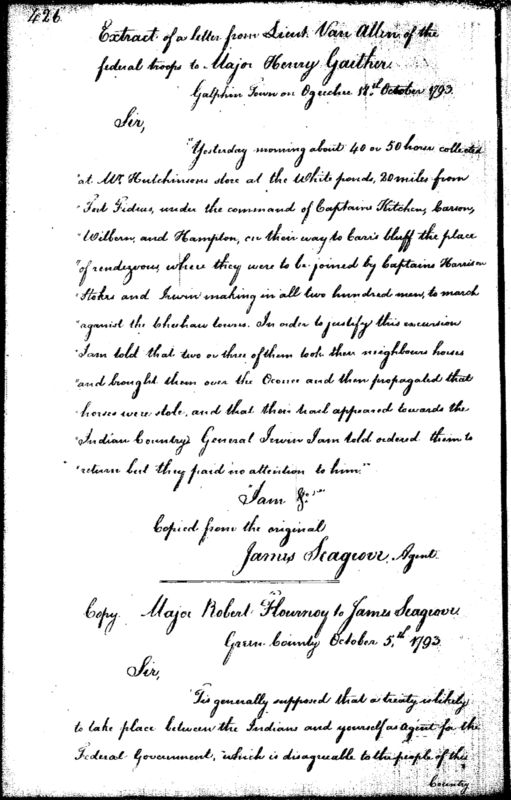 426
Extract of a letter from Lieut. Van Allen of the
federal troops to Major Henry Gaither
Galphin Town on Ogechee 12th October 1793
Sir,
"Yesterday morning about 40 or 50 horse collected
"at Mr Hutchinsons store at the White ponds, 20 miles from
"Fort Fidius, under the command of Captains Kitchen, Carson,
"Wilbern, and Hampton, on their way to Carrs bluff the place
"of rendezvous, where they were to be joined by Captains Harrison
"Stokes and Irwin making in all two hundred men, to march
"against the Chehaw towns. In order to justify this excursion
"I am told that two or three of them took their neighbours horses
"and brought them over the Oconee and then propagated that
"horses were stole, and that their trail appeared towards the
"Indian Country, General Irwin I am told ordered them to
"return but they paid no attention to him."
"I am &c."
Copied from the original
James Seagrove, Agent
Copy Major Robert Flournoy to James Seagrove
Green County October 5th, 1793
Sir,
Tis generally supposed that a treaty is likely
to take place between the Indians and yourself as agent for the
Federal Government, which is disagreeable to the people of this
County